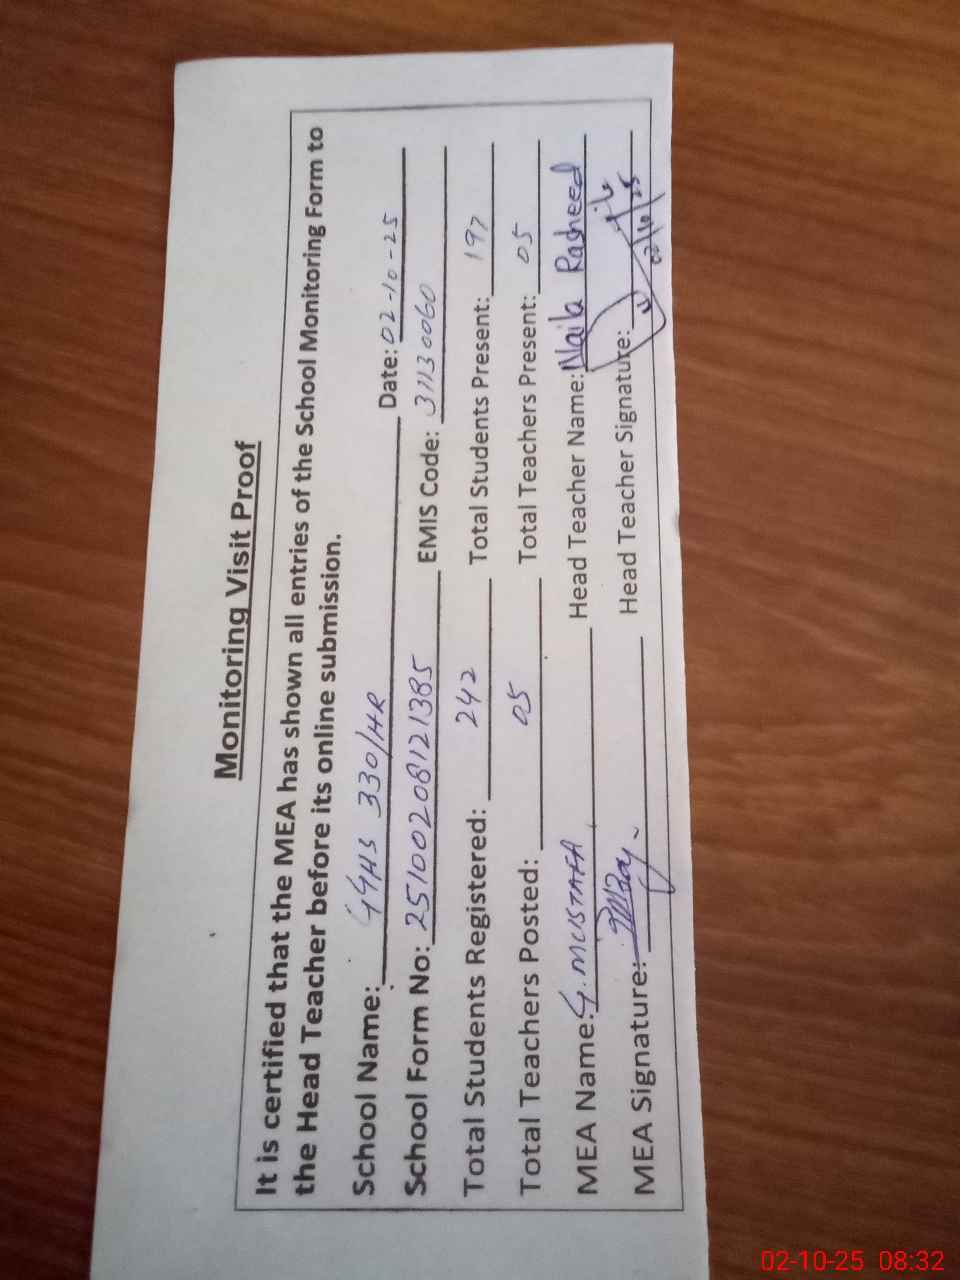 Monitoring Visit Proof
It is certified that the MEA has shown all entries of the School Monitoring Form to
the Head Teacher before its online submission.
School Name: GGHS 330/HR Date: 02-10-25
School Form No: 2510020812 1385 EMIS Code: 31130060
Total Students Registered: 242 Total Students Present: 197
Total Teachers Posted: 05 Total Teachers Present: 05
MEA Name: G. MUSTAFA Head Teacher Name: Naila Rasheed
MEA Signature: Head Teacher Signature:
02/10/25
02-10-25 08:32